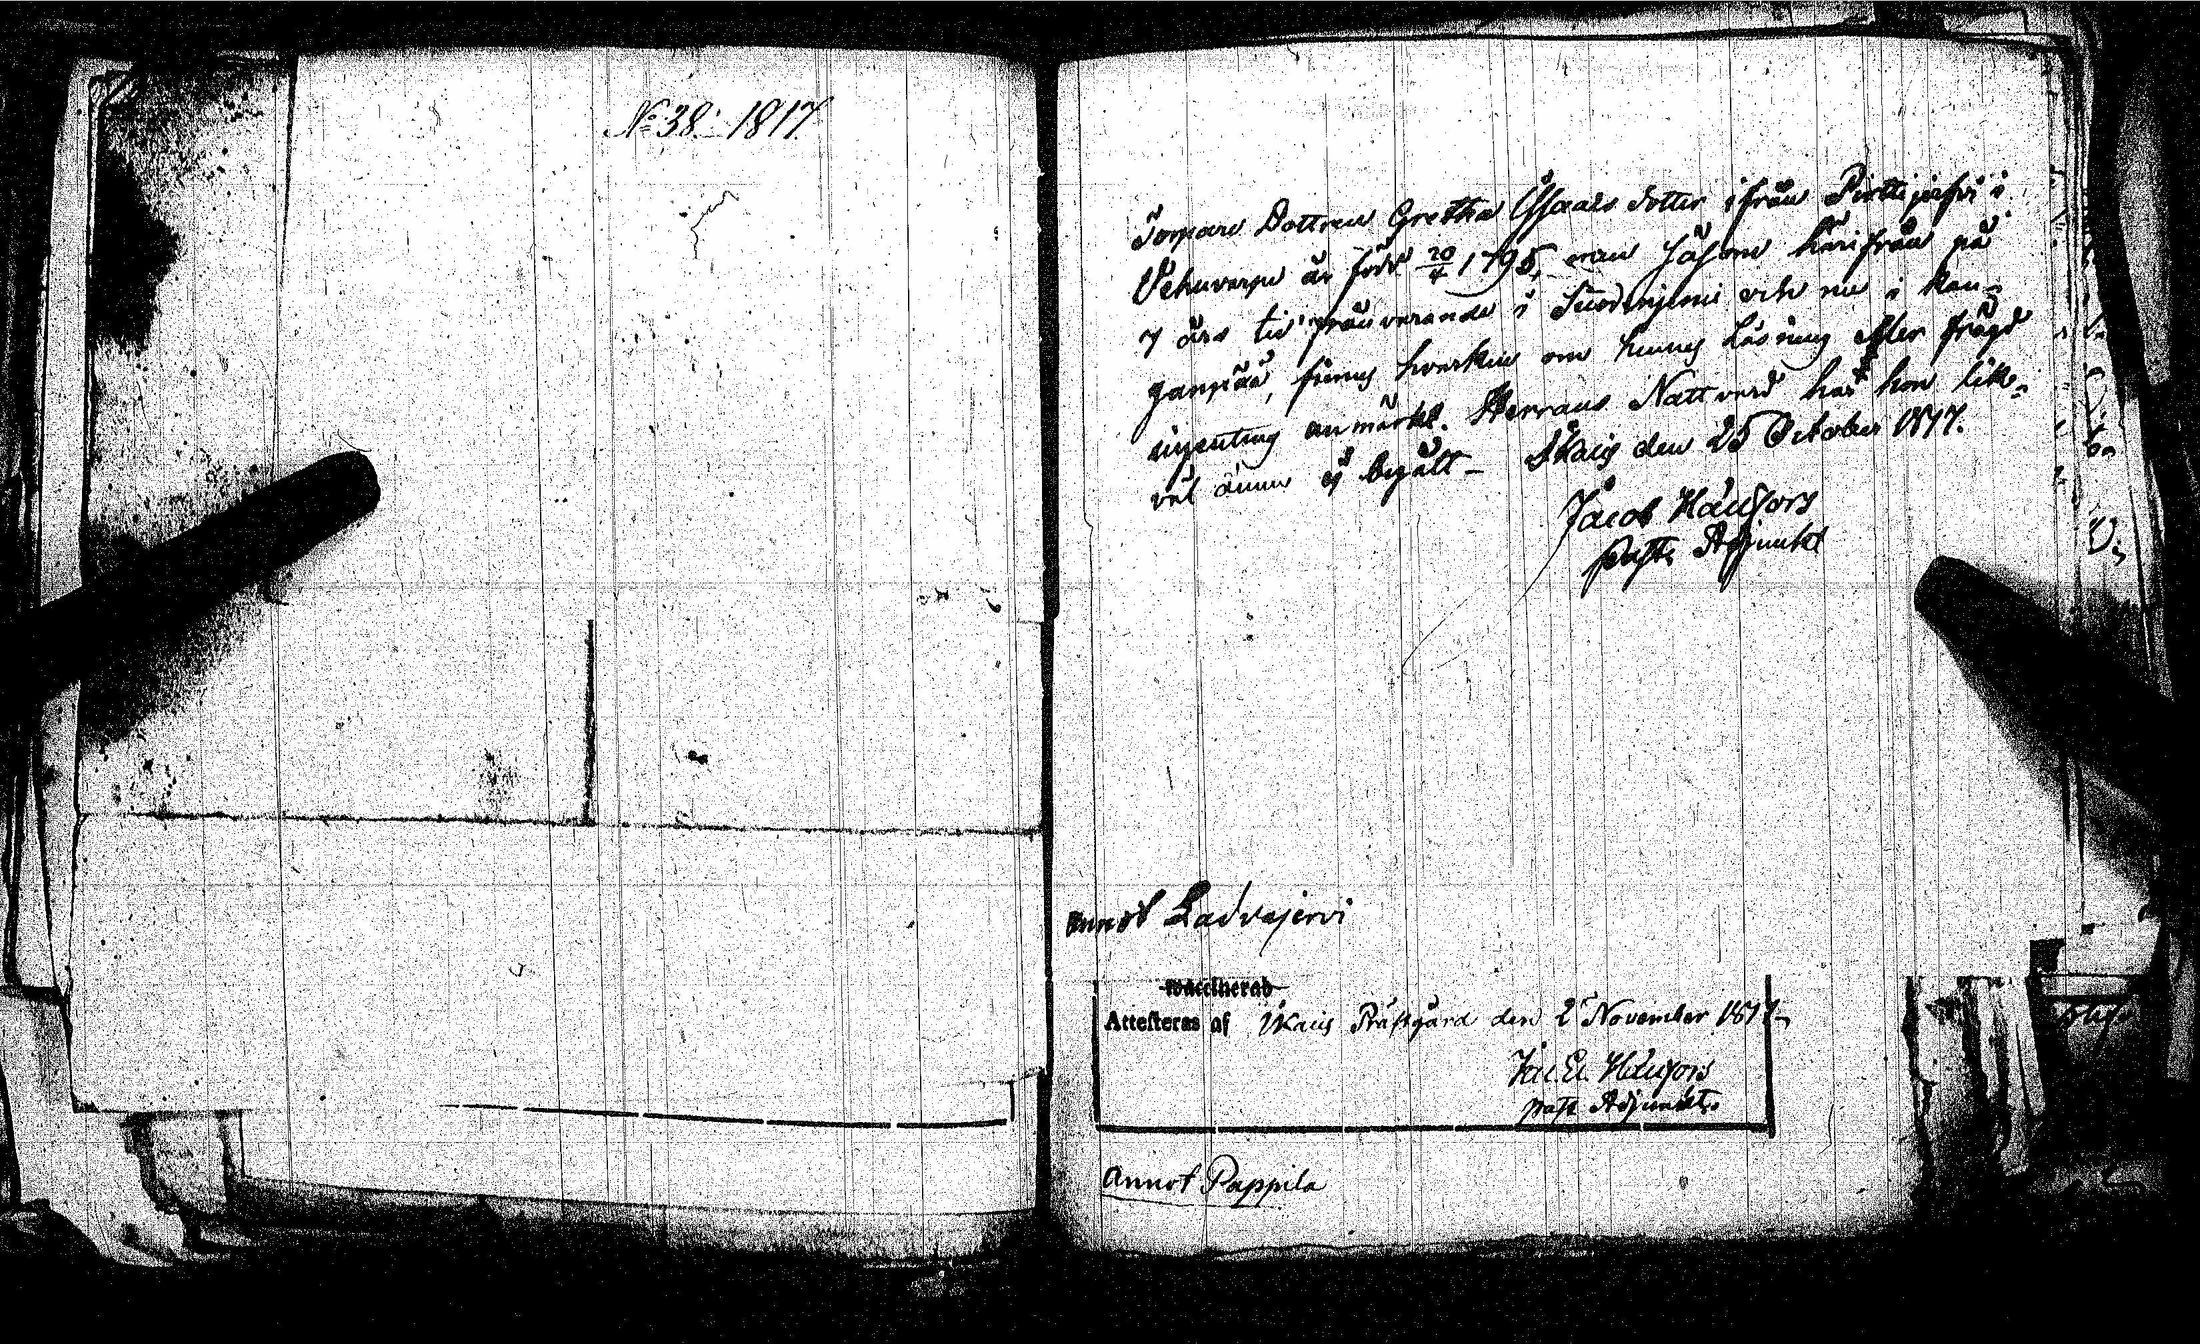 No 38. 1817
Torpare Dottren Gretha Isaacs dotter ifrån Perttijerfvi i
Vehuvarpe är född 20/4 1795, men såsom härifrån på
7 års tid frånvarande i Suodenjemi och nu i Kan-
ganpää, finnes hvarken om hennes Läsning eller frägd
ingenting anmärkt. Herrans Nattvard har hon like-
väl ännu ej begått – Ikalis den 25 October 1817.
Jacob Häggfors
past. Adjunct
Annot Ladvajervi
vaccinerad
Attesteras af Ikalis Prästgård den 2 November 1817
Jac. Ed. Häggfors
past. Adjunct.
Annot Pappila